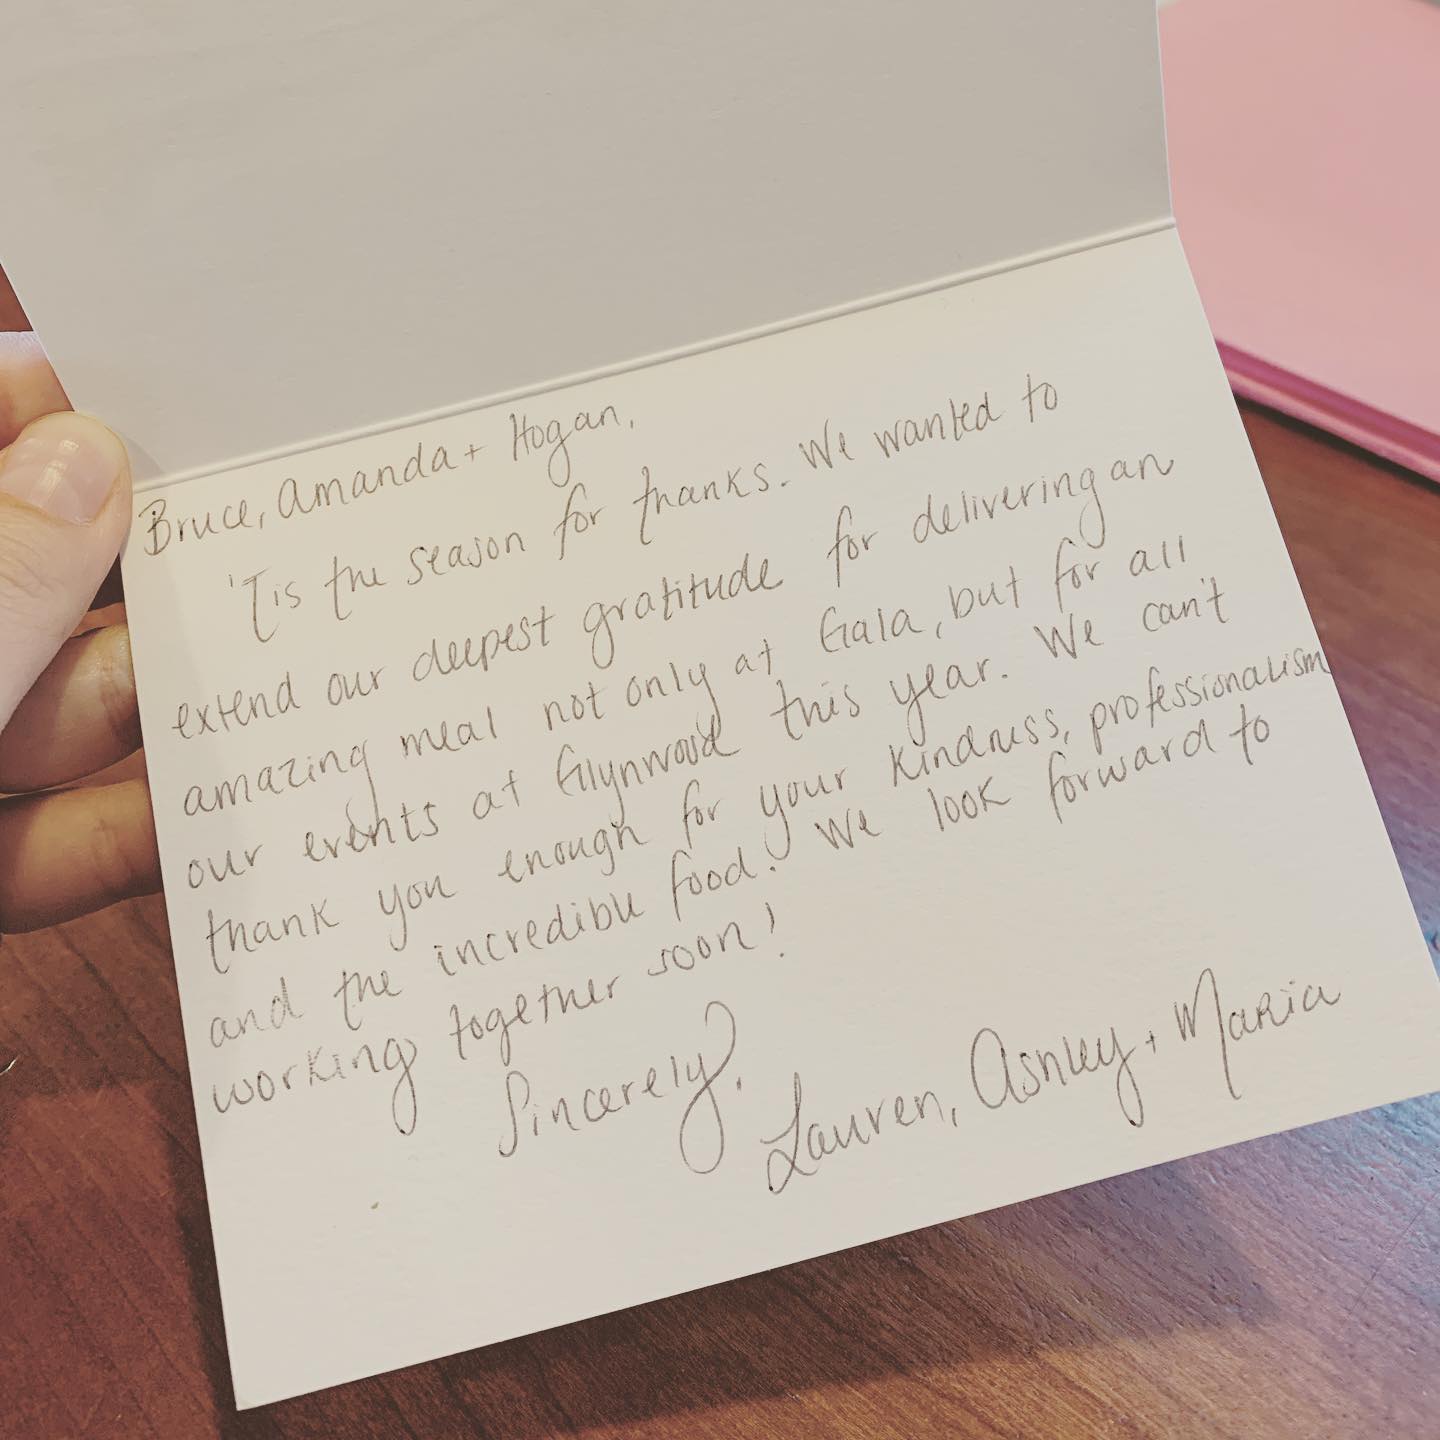 Bruce, Amanda + Hogan,
'Tis the season for thanks. We wanted to
extend our deepest gratitude for delivering an
amazing meal not only at Gala, but for all
our events at Glynwood this year. We can't
thank you enough for your kindness, professionalism
and the incredible food. We look forward to
working together soon!
Sincerely,
Lauren, Ashley + Maria